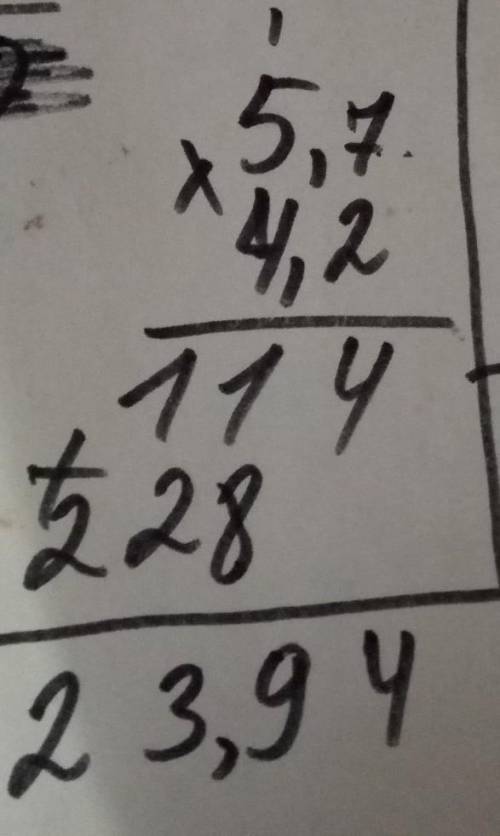 1
5,7
× 4,2
114
+
228
23,94